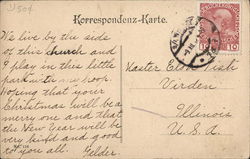 Korrespondenz-Karte.
We live by the side
of this church and
I play in this little
park with my hoop.
Hoping that your
Christmas will be a
merry one and that
the New Year will be
very kind and good
to you all.
Master
Virden
Illinois
U. S. A.